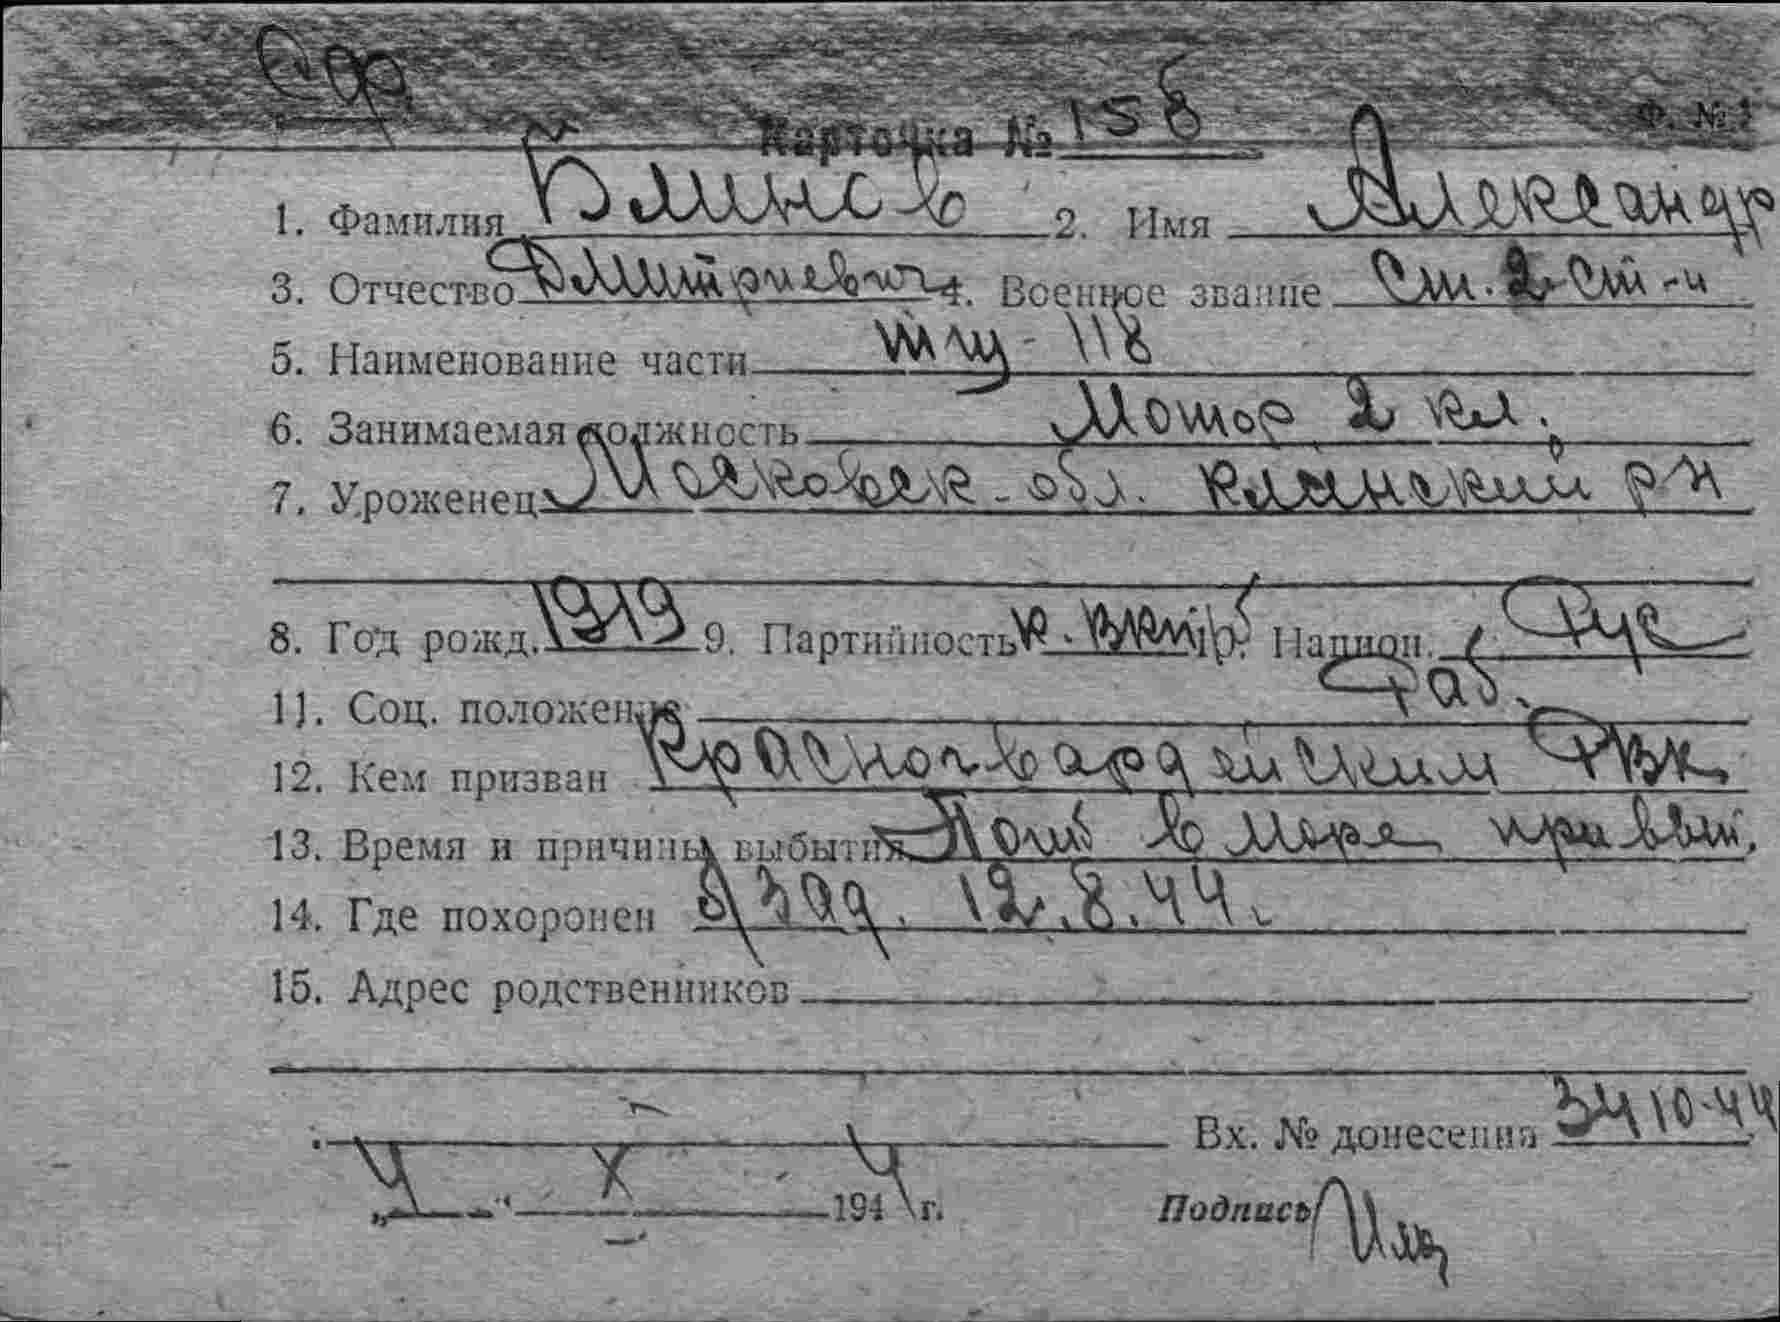 Карточка № 158 Ф. № 1
1. Фамилия Блинов 2. Имя Александр
3. Отчество Дмитриевич 4. Военное звание Ст. 2 ст-и
5. Наименование части тщ - 118
6. Занимаемая должность Мотор 2 кл.
7. Уроженец Московск. обл. Клинский р-н
8. Год рожд. 1919 9. Партийность к. ВКП/б 10. Национ. Рус
11. Соц. положение Раб.
12. Кем призван Красногвардейским РВК
13. Время и причины выбытия Погиб в море при вып.
14. Где похоронен б/зад. 12.8.44 г.
15. Адрес родственников
Вх. № донесения 3410-44
„ 4 " X 1944 г. Подпись